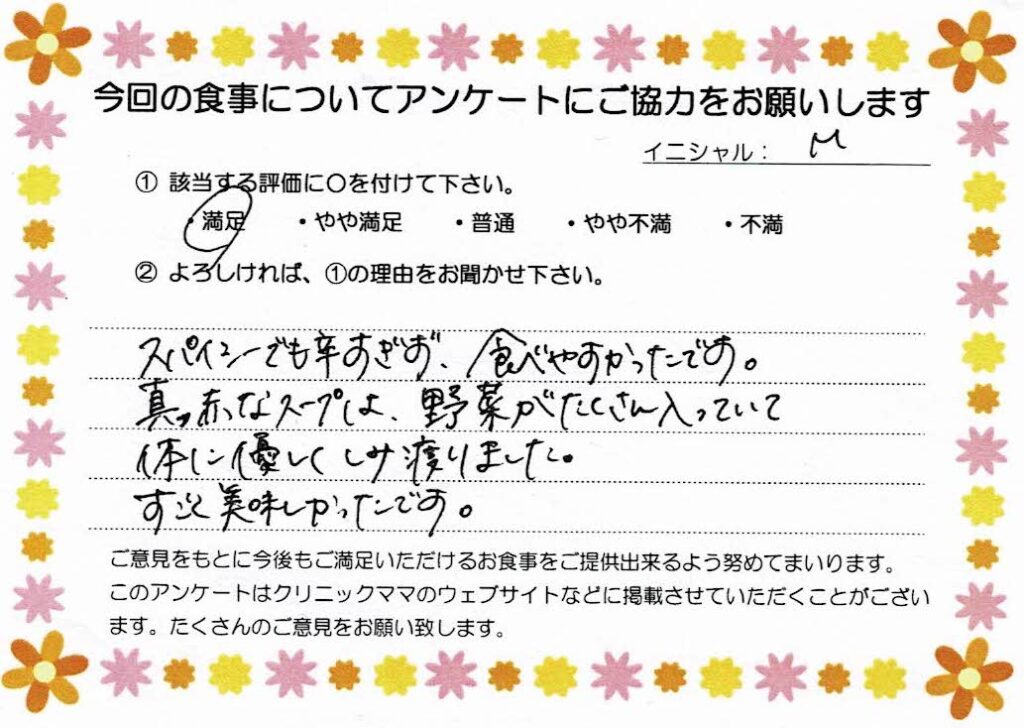 今回の食事についてアンケートにご協力をお願いします
イニシャル： M
① 該当する評価に〇を付けて下さい。
・満足 ・やや満足 ・普通 ・やや不満 ・不満
② よろしければ、①の理由をお聞かせ下さい。
スパイシーでも辛すぎず、食べやすかったです。
真っ赤なスープは、野菜がたくさん入っていて
体に優しくしみ渡りました。
すごく美味しかったです。
ご意見をもとに今後もご満足いただけるお食事をご提供出来るよう努めてまいります。
このアンケートはクリニックママのウェブサイトなどに掲載させていただくことがござい
ます。たくさんのご意見をお願い致します。